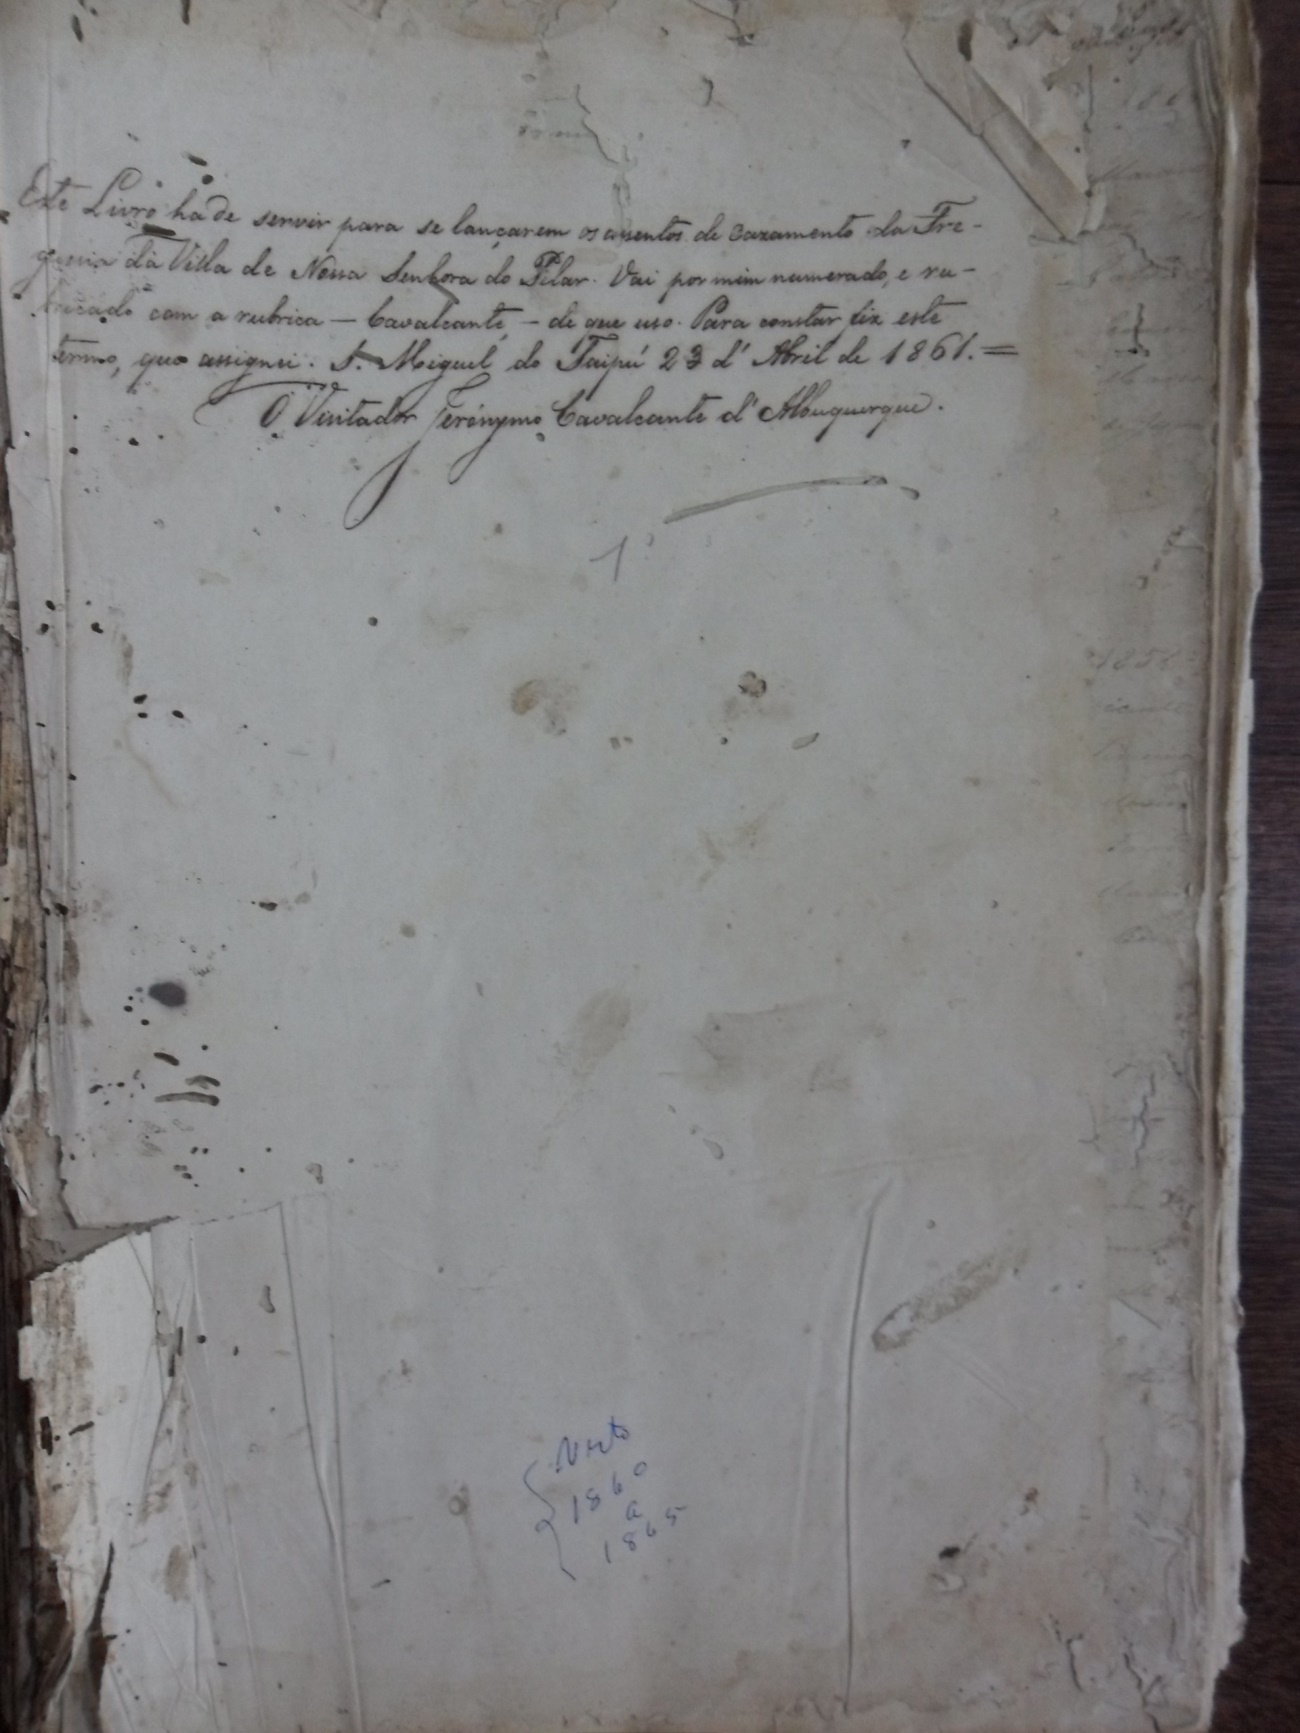 Este Livro ha de servir para se lançarem os assentos de Cazamento da Fre-
guesia da Villa de Nossa Senhora do Pilar. Vai por mim numerado, e ru-
bricado com a rubrica — Cavalcante — de que uso. Para constar fiz este
termo, que assignei. S. Miguel do Taipú 23 d' Abril de 1861. =
O Visitador Jerónymo Cavalcante d' Albuquerque.
1º
1860
a
1865
1858